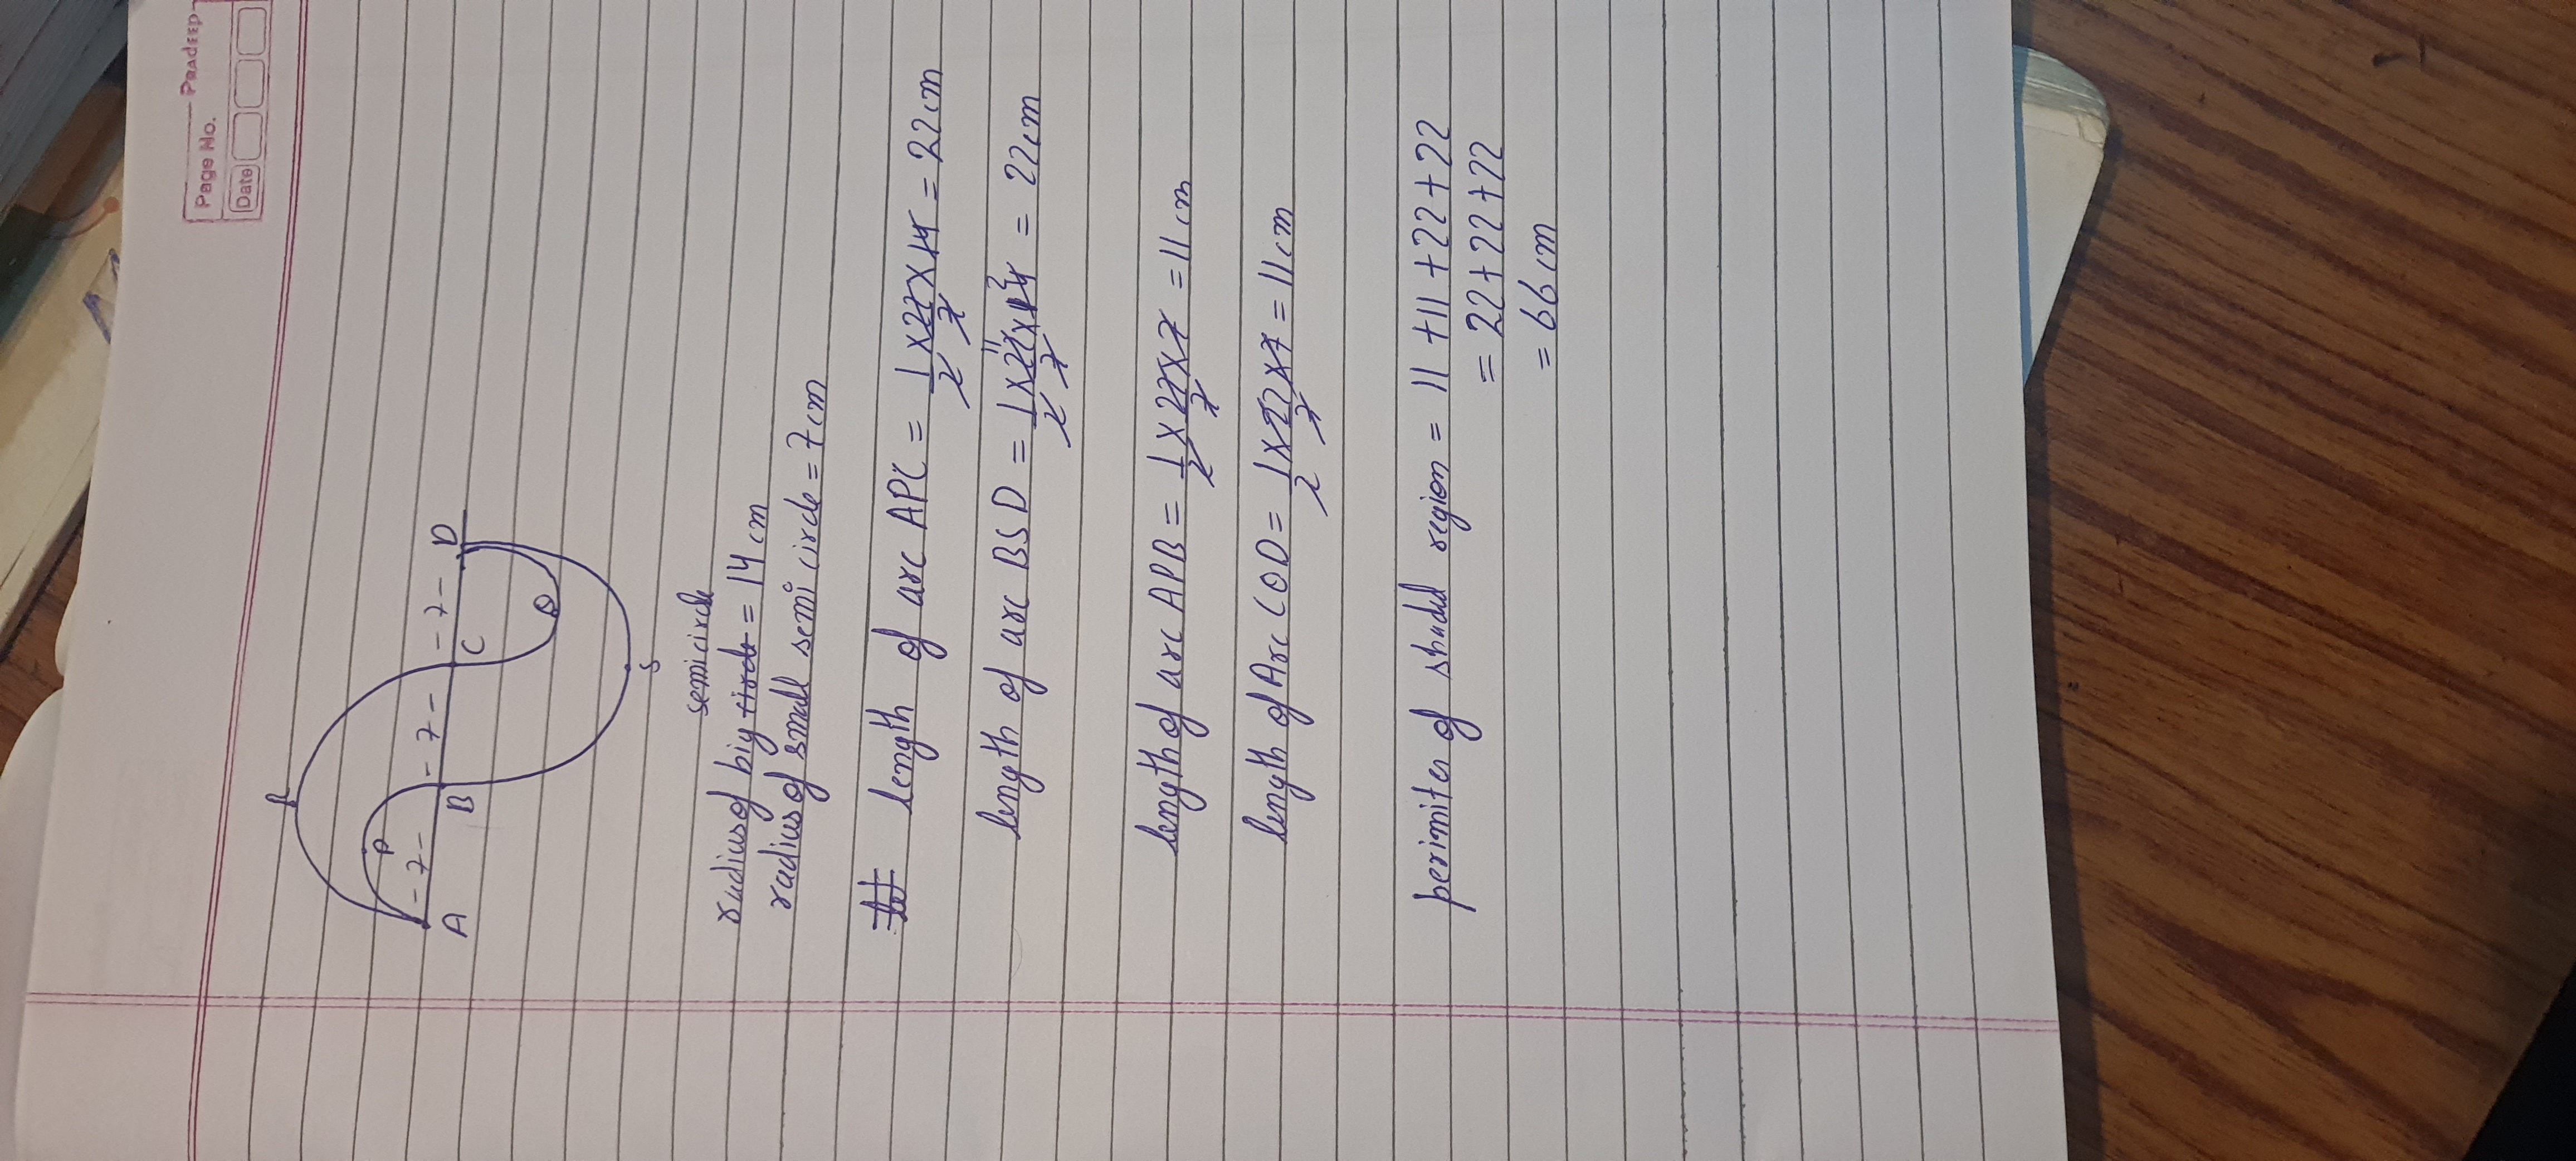 Page No.
PRADEEP
Date
R
P
- 7 -
- 7 -
- 7 -
D
A
B
C
Q
S
semicircle
radius of big circle = 14 cm
radius of small semi circle = 7cm
length of arc APC = 1/2 x 22/7 x 14 = 22cm
length of arc BSD = 1/2 x 22/7 x 14 = 22cm
11 2
length of arc APB = 1/2 x 22/7 x 7 = 11cm
length of Arc CQD = 1/2 x 22/7 x 7 = 11cm
perimiter of shaded region = 11 + 11 + 22 + 22
= 22 + 22 + 22
= 66 cm